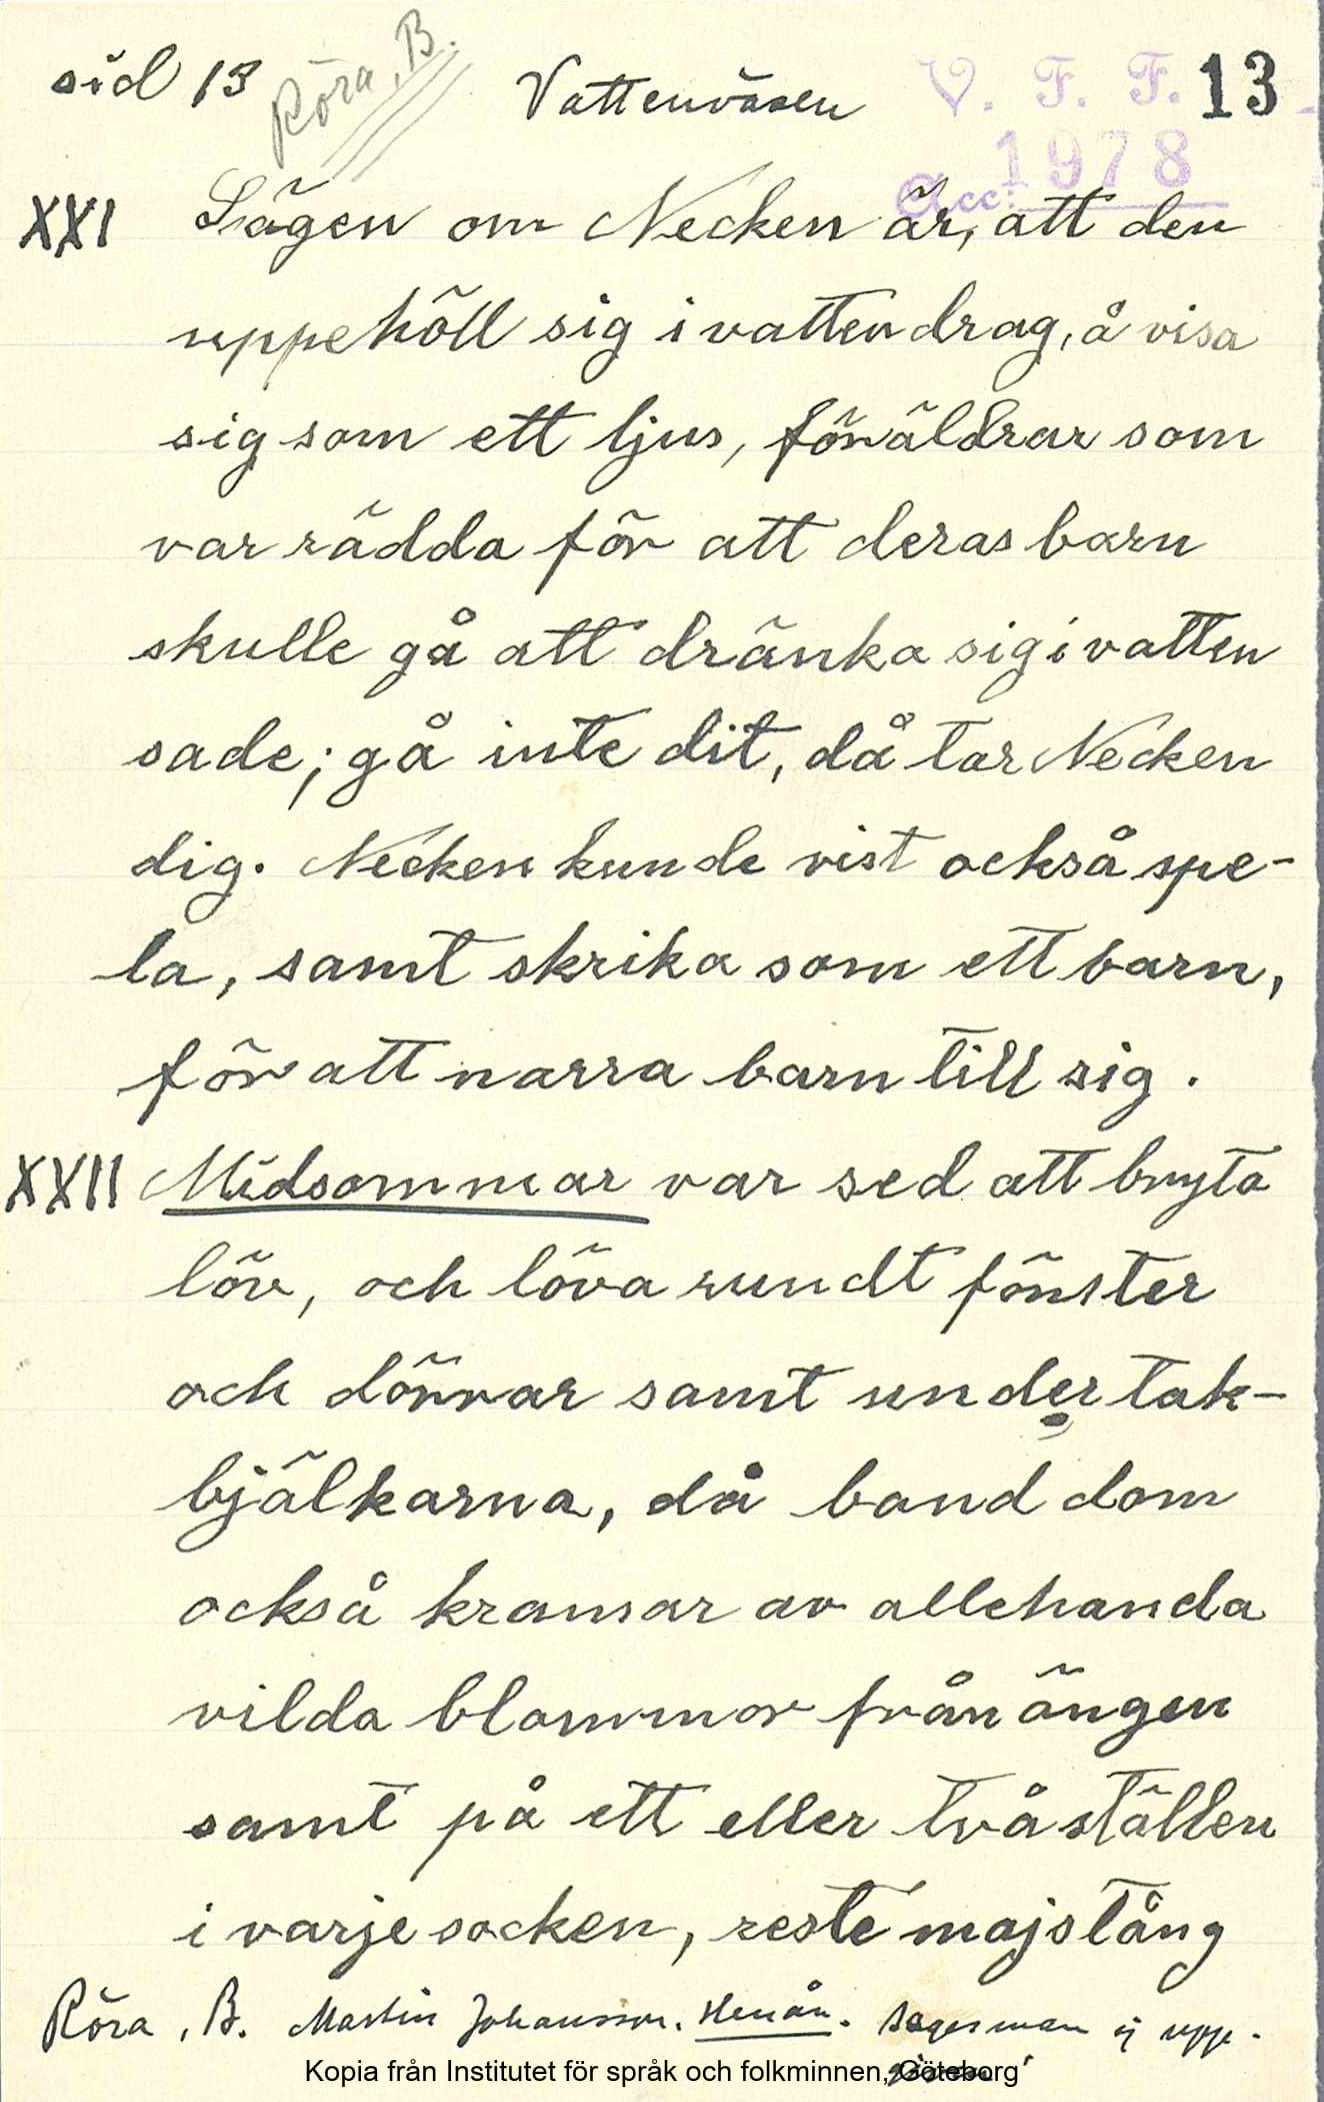 sid 13 Röra, B. Vattenväsen V. F. F. 13
Acc: 1978
XXI Sägen om Necken är, att den
uppehöll sig i vattendrag, å visa
sig som ett ljus, föräldrar som
var rädda för att deras barn
skulle gå att dränka sig i vatten
sade; gå inte dit, då tar Necken
dig. Necken kunde vist också spe-
la, samt skrika som ett barn,
för att narra barn till sig.
XXII Midsommar var sed att bryta
löv, och löva rundt fönster
och dörrar samt under tak-
bjälkarna, då band dom
också kransar av allehanda
vilda blommor från ängen
samt på ett eller två ställen
i varje socken, reste majstång
Röra, B. Martin Johansson. Henån. Sagesman ej uppe-
Kopia från Institutet för språk och folkminnen, Göteborg